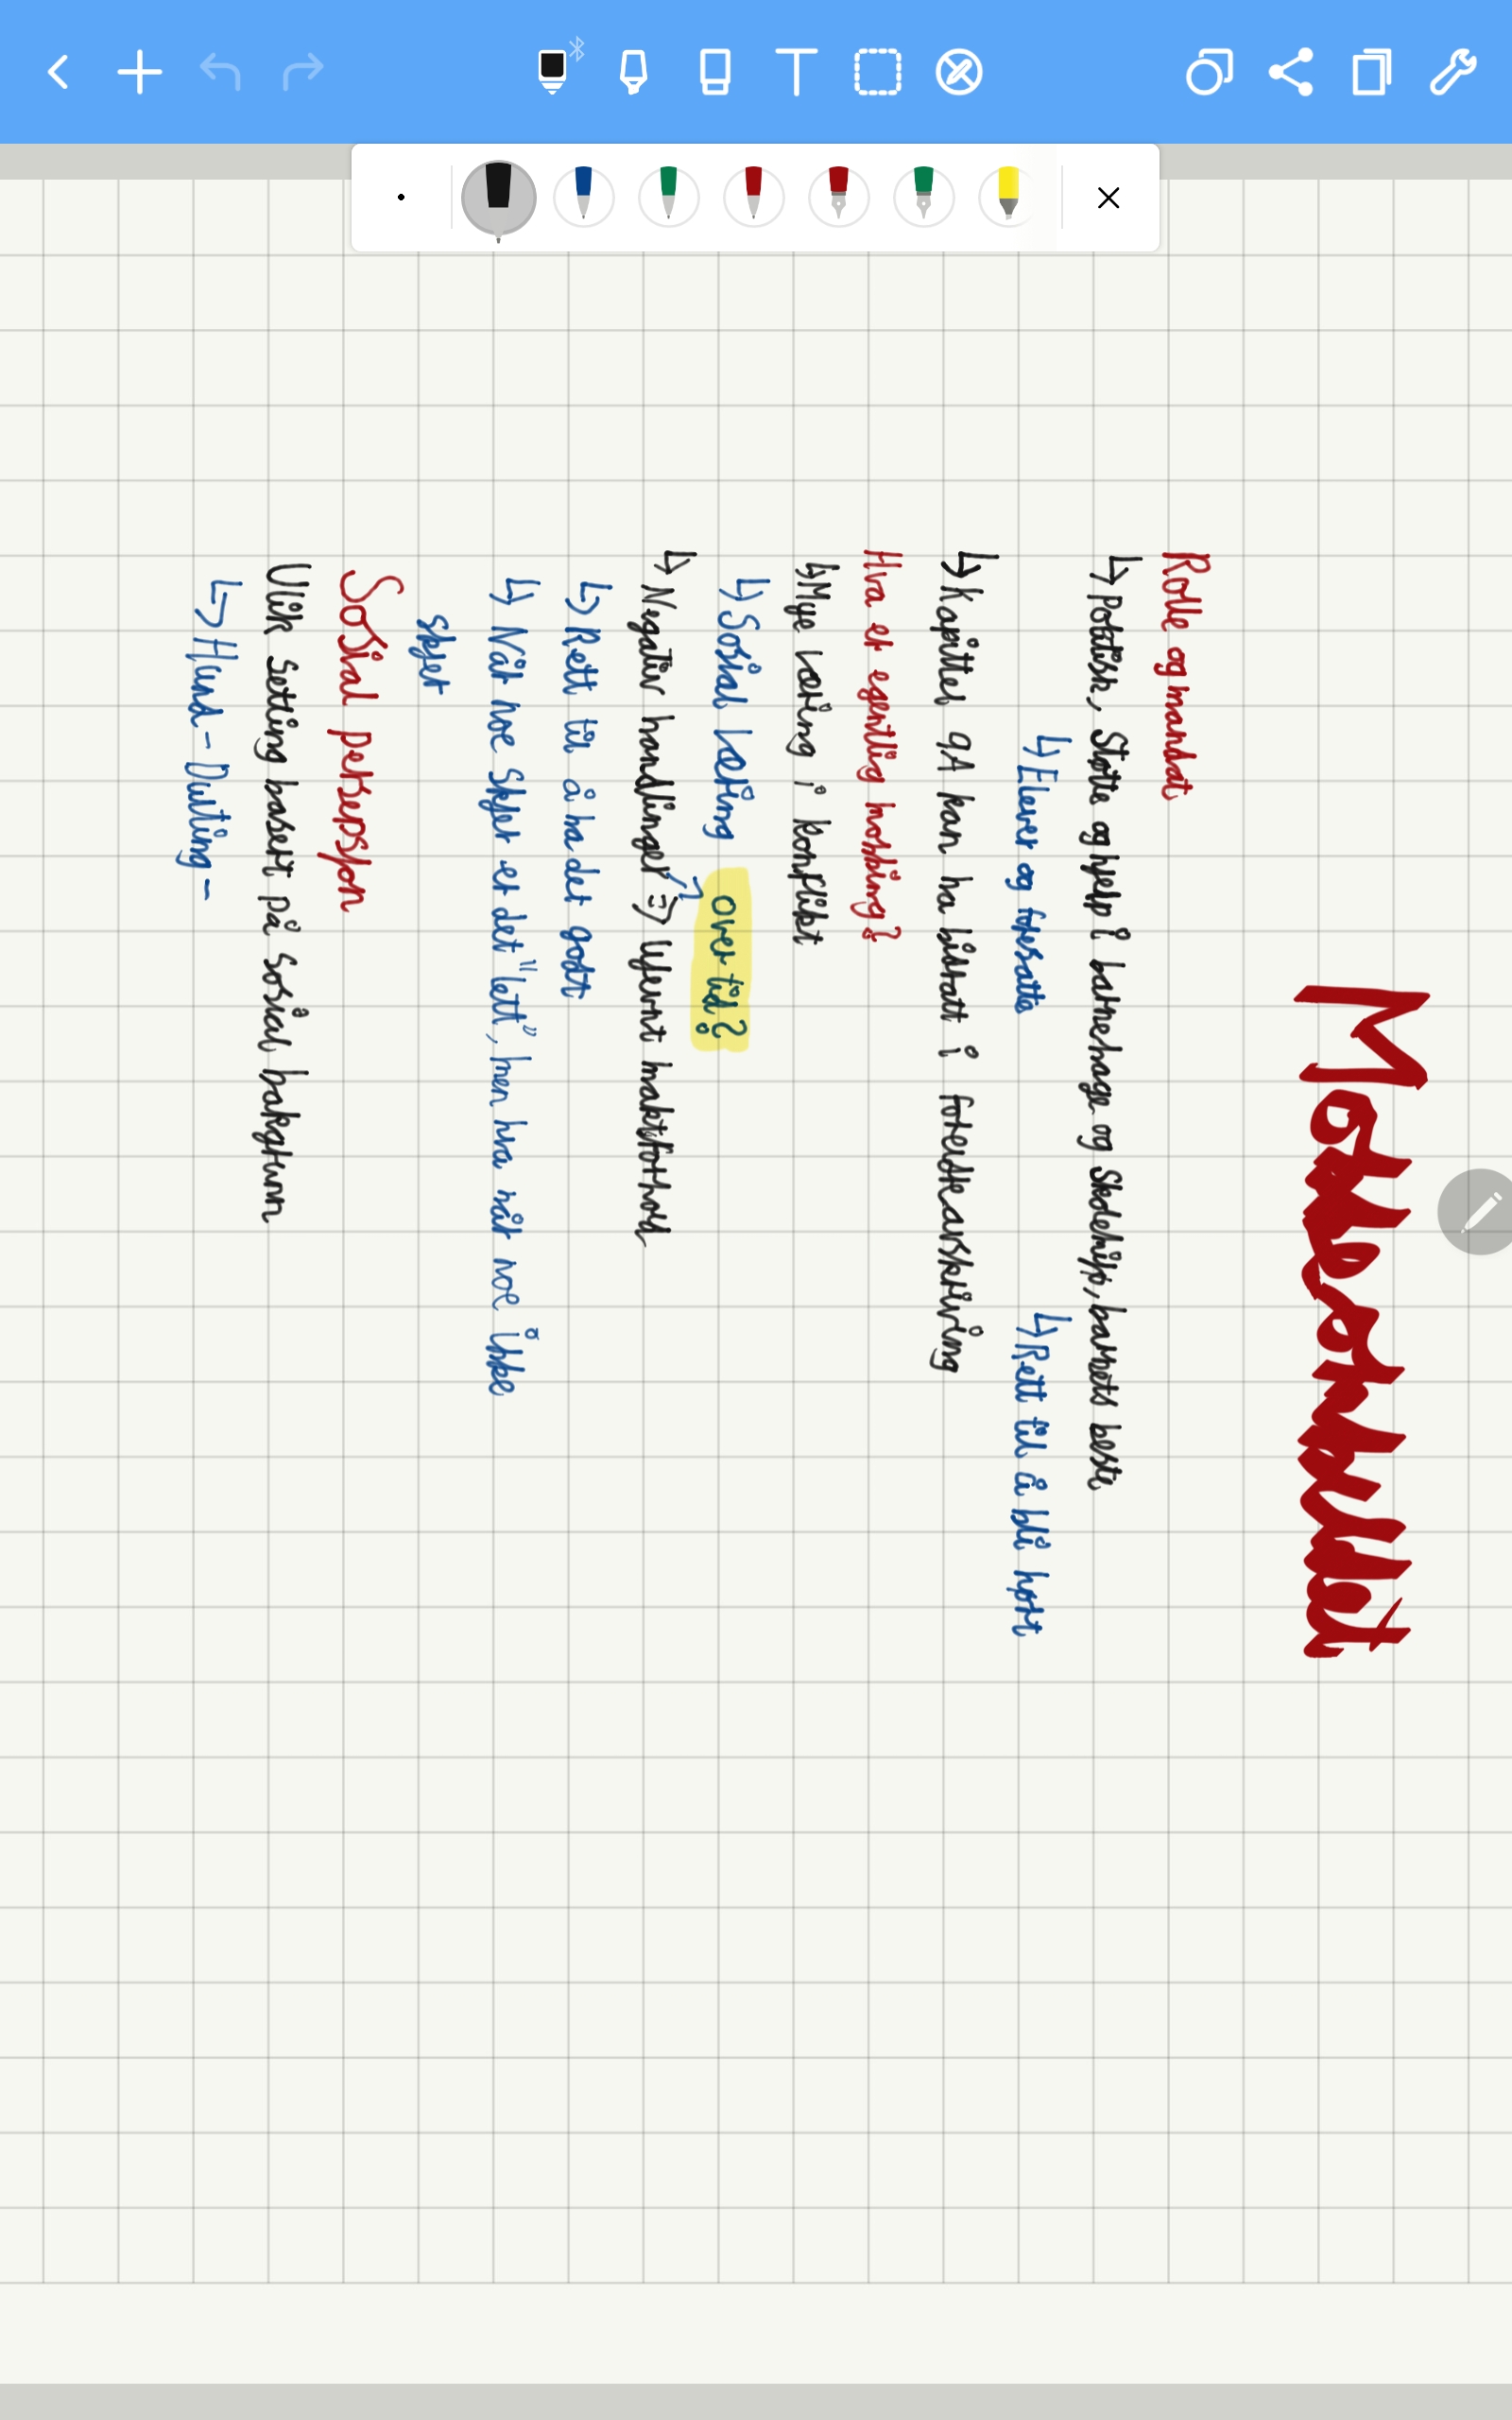 Mobbeombudet
Rolle og mandat
↳ Politisk, Støtte og hjelp i barnehage og Skolemiljø, barnets beste
↳ Elever og foresatte ↳ Rett til å bli hørt
↳ Kapittel 9A kan ha bidratt i foreldreavskriving
Hva er egentlig mobbing?
↳ Mye læring i konflikt
↳ Sosial læring over tid?
↳ Negativ handlinger => Ujevnt maktforhold
↳ Rett til å ha det godt
↳ Når noe Skjer er det "lett", men hva når noe ikke
Skjer
Sosial persepsjon
Ulik Setting basert på Sosial bakgrunn
↳ Hund - Dulting -